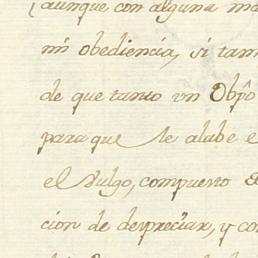 (aunque con alguna
mi obediencia, si tam
de que tanto vn Obpô
para que le alabe e
el Vulgo, compuesto
cion de despreciar, y co